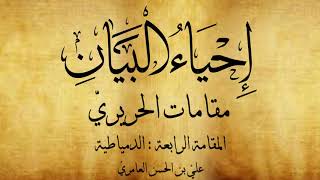 إِحْيَاءُ البَيَانِ
مقامات الحريريّ
المقامة الرابعة : الدمياطية
علي بن الحسن العامري